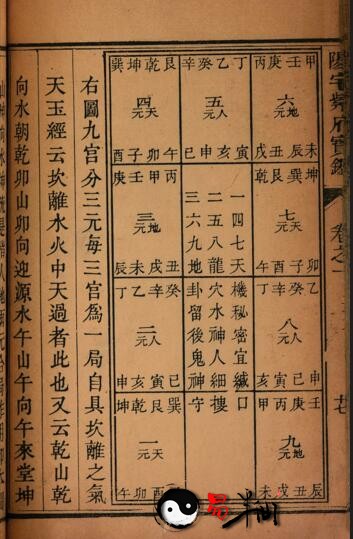 陽宅紫府寶鑑 卷之一 廿七
丙庚壬甲
六地元
戌丑辰未
辛癸乙丁
五人元
巳申亥寅
巽坤乾艮
四天元
酉子卯午
乾艮巽坤
七天元
午酉子卯
一四七天機秘密宜緘口
二五八龍穴水神人細摟
三六九地卦留後鬼神守
庚壬甲丙
三地元
辰未戌丑
丁乙癸辛
八人元
亥寅申巳
丁乙癸辛
二人元
申亥寅巳
九地元
未戌丑辰
坤乾艮巽
一天元
午卯酉子
右圖九宮分三元每三宮為一局自具坎離之氣
天玉經云坎離水火中天過者此也又云乾山乾
向水朝乾卯山卯向迎源水午山午向午來堂坤